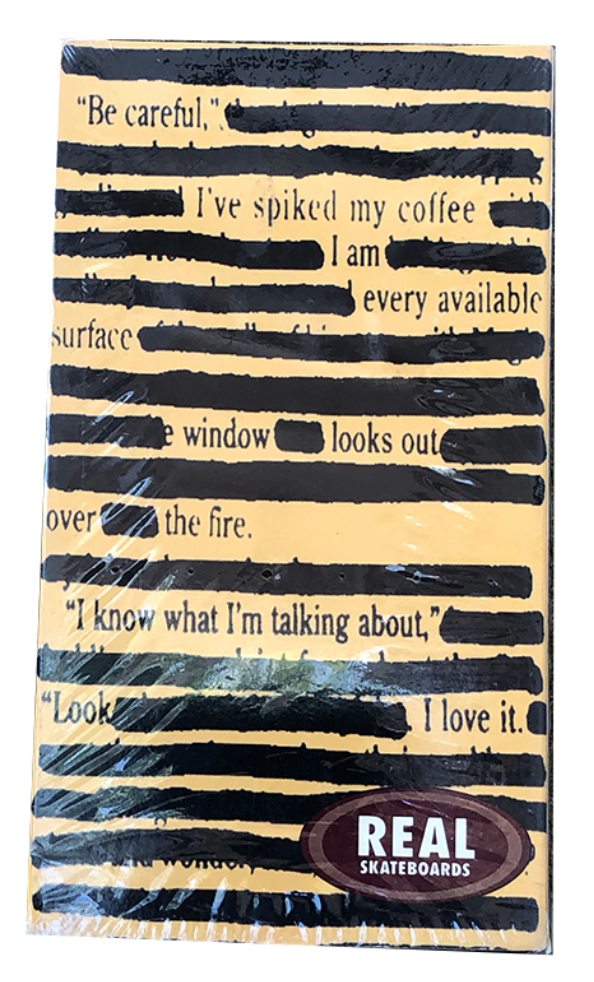 "Be careful,"
I've spiked my coffee
I am
every available
surface
window looks out
over the fire.
"I know what I'm talking about,"
"Look I love it.
REAL
SKATEBOARDS